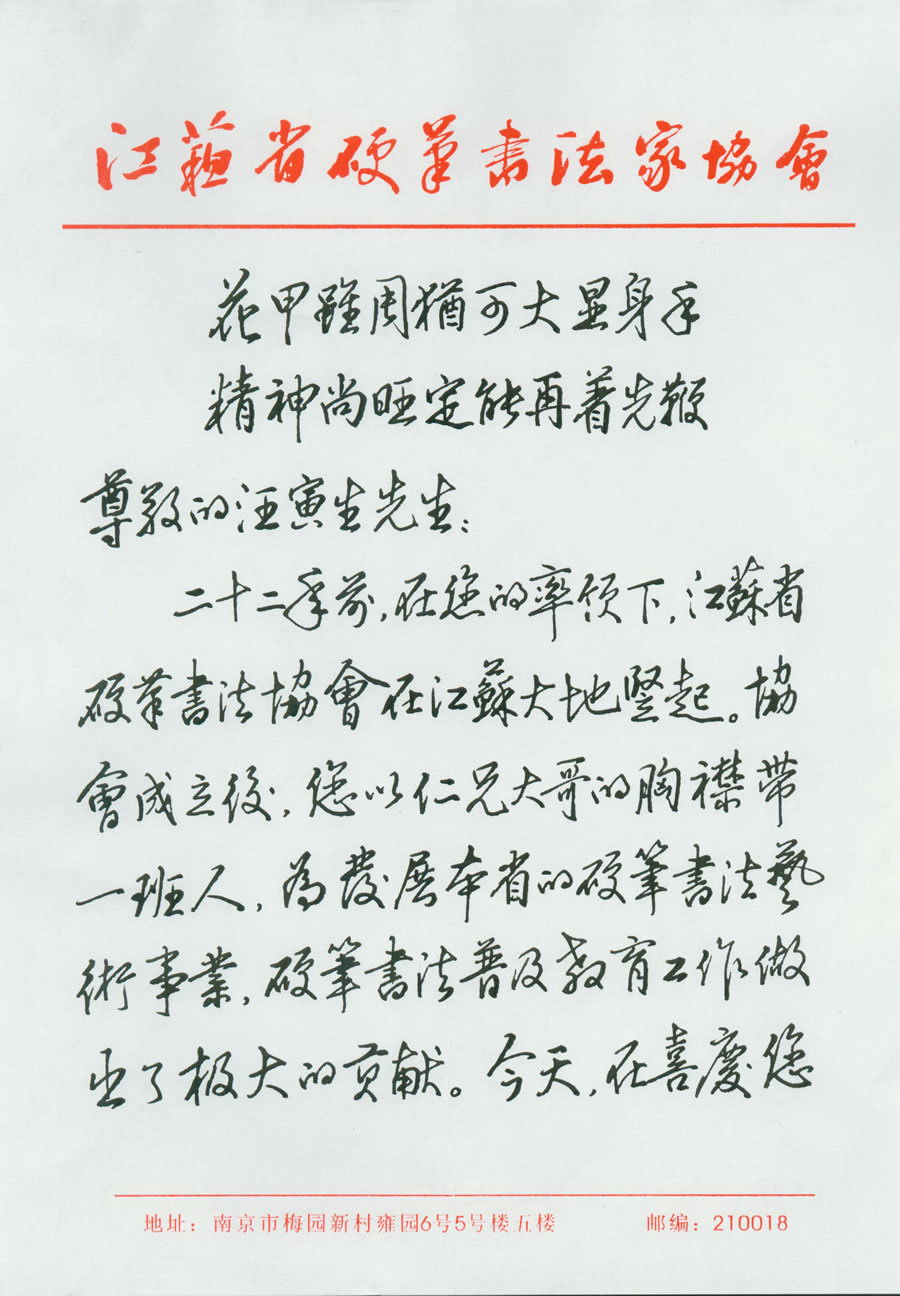 江蘇省硬筆书法家協會
花甲雖周猶可大显身手
精神尚旺定能再着先鞭
尊敬的汪寅生先生:
二十二年前,在您的率领下,江蘇省
硬筆書法協會在江蘇大地竖起。協
會成立後,您以仁兄大哥的胸襟带
一班人,為發展本省的硬筆書法藝
術事業,硬筆書法普及教育工作做
出了极大的贡献。今天,在喜慶您
地址：南京市梅园新村雍园6号5号楼五楼 邮编：210018